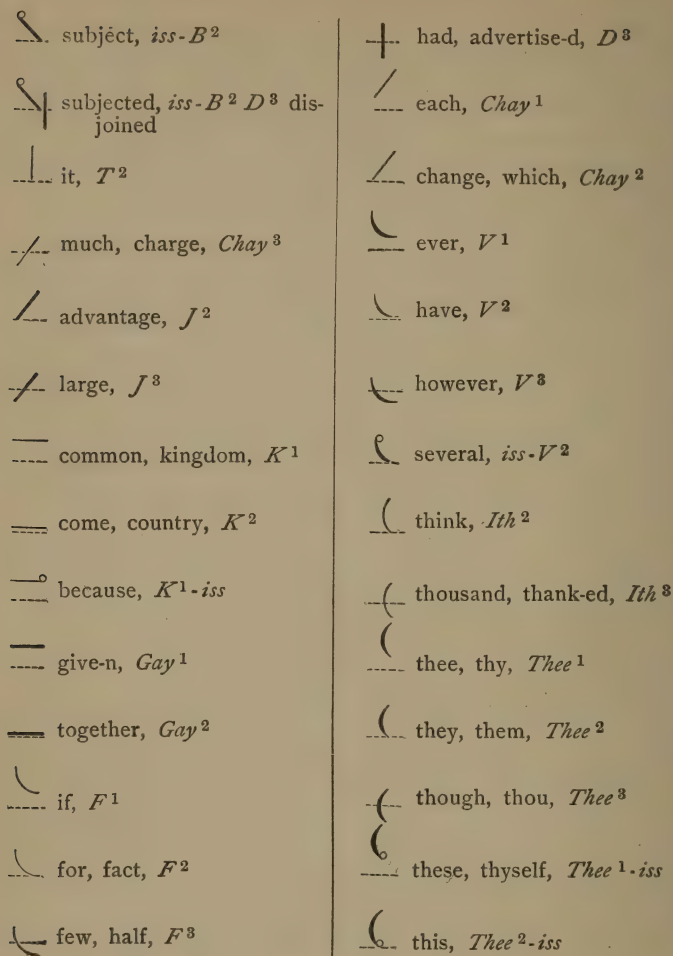 subject, iss-B²
subjected, iss-B² D³ dis-
joined
it, T²
much, charge, Chay³
advantage, J²
large, J³
common, kingdom, K¹
come, country, K²
because, K¹-iss
give-n, Gay¹
together, Gay²
if, F¹
for, fact, F²
few, half, F³
had, advertise-d, D³
each, Chay¹
change, which, Chay²
ever, V¹
have, V²
however, V³
several, iss-V²
think, Ith²
thousand, thank-ed, Ith³
thee, thy, Thee¹
they, them, Thee²
though, thou, Thee³
these, thyself, Thee¹-iss
this, Thee²-iss